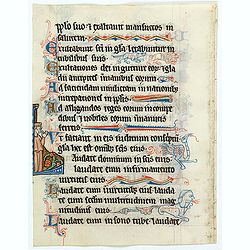 pplo suo et exaltauit mansuetos in
salutem
Exultabunt sci in gla letabuntur in
cubilibus suis
Exaltationes dei in gutture eor et gla
dii ancipites in manibus eorum
Ad faciendam uindictam in nationib;
increpationes in pplis
Ad alligandos reges eorum in compe
dibus et nobiles eorum in manicis
ferreis
Ut faciant in eis iudicium conscriptu
gla hec est omib; scis eius
Laudate dominum in scis eius
laudate eum in firmamento
uirtutis eius
Laudate eum in uirtutib; eius lauda
te eum scdm multitudinem mag
nitudinis eius
Laudate eum in sono tube laudate